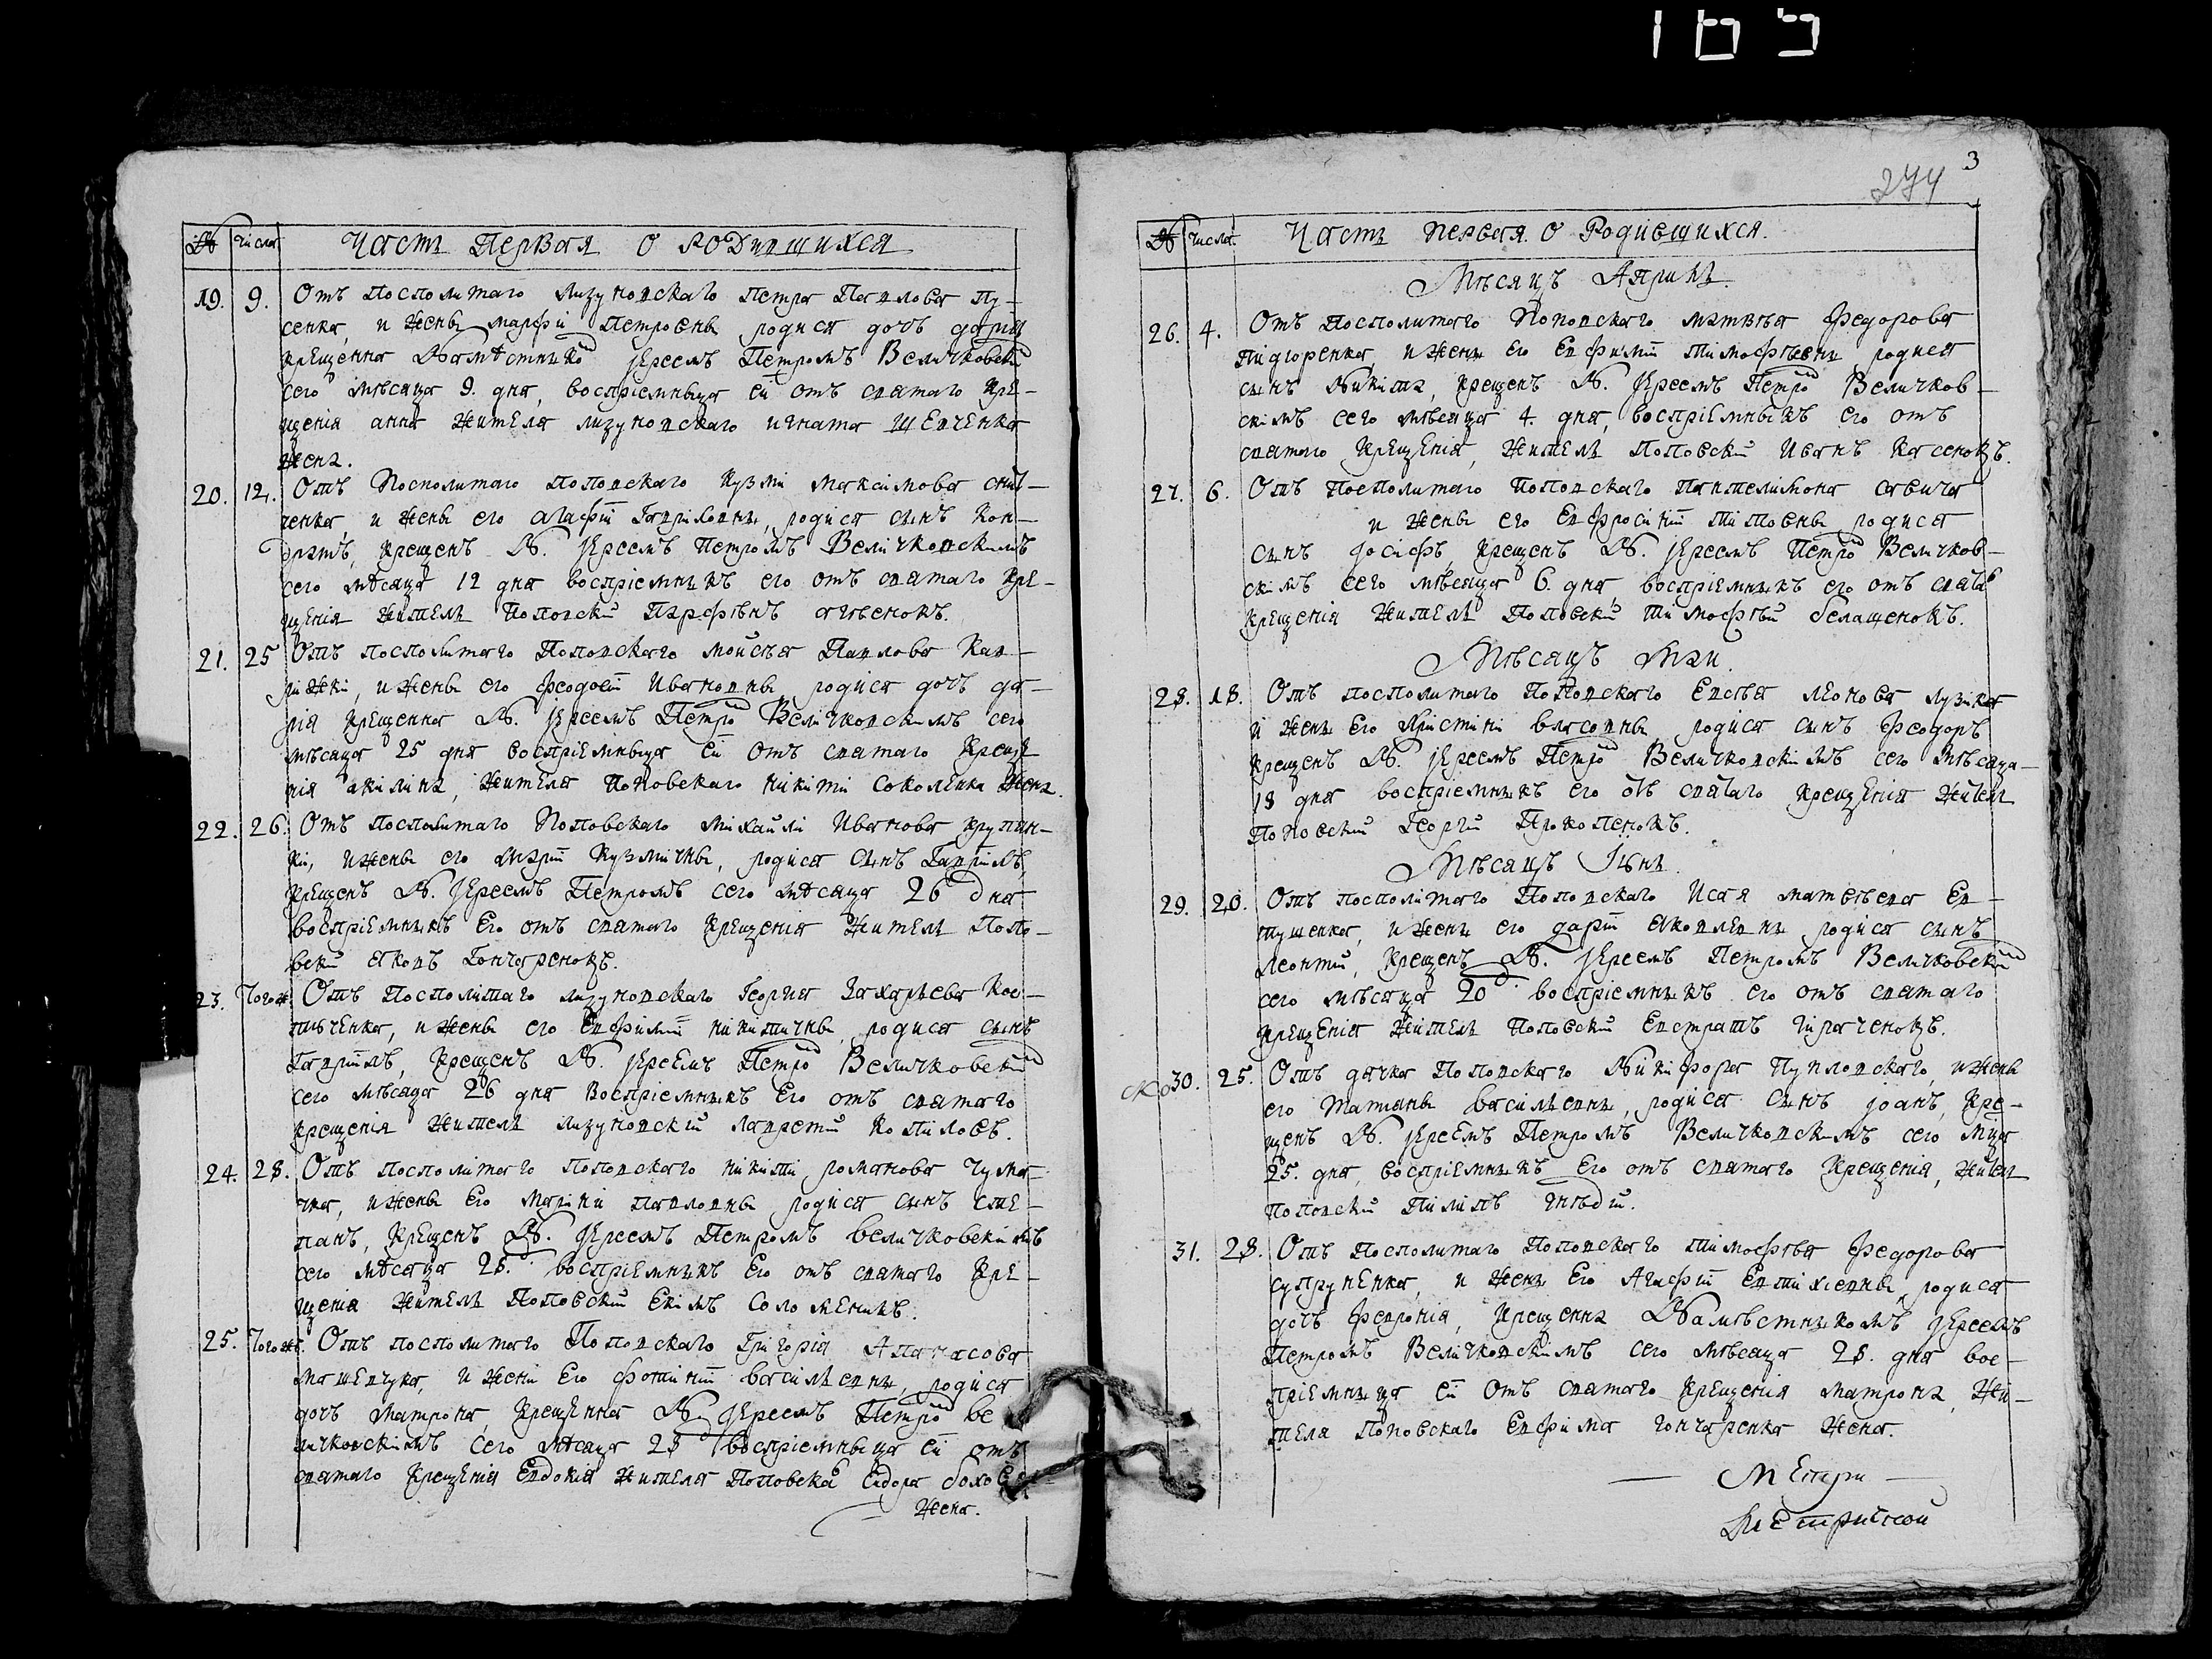 165
№ числа Часть Первая О РОДившихся
19. 9. Отъ посполитаго лизуновскаго петра Павлова пу-
сенка, и жены марфы Петровны родися дочъ дарія
крещенна Намѣстнико іереемъ Петромъ Величковски
сего мѣсяца 9. дня, воспріемныца ей отъ святаго кре-
щенія анна жителя лизуновскаго игната шевченка
жена.
20. 12. Отъ Посполитаго поповскаго кузмы максимова
ченка, и жены его агафіи Гавриловны, родися сынъ Кон-
дратъ, крещенъ N. іереемъ петромъ Величковскимъ
сего мѣсяца 12 дня воспріемникъ его отъ святаго кре-
щенія житель Поповский Парфѣнъ
21. 25 Отъ посполитаго Поповскаго мойсѣя Павлова Кав-
и жены его феодосіи Ивановны, родися дочъ да-
рія крещенна N. іереемъ Петро Величковскимъ сего
мѣсяца 25 дня воспріемныца ей отъ святаго креще-
нія акилина, жителя поповскаго никити Соколенка жена.
22. 26. Отъ посполитаго Поповскаго михайли Иванова крупян-
ки, и жены его маріи кузмичны, родися сынъ Гавріилъ,
крещенъ N. іереемъ Петромъ сего мѣсяца 26 дня
воспріемникъ Его отъ святаго крещенія житель Попо-
вский яковъ Гончаренокъ.
23. Тогож. Отъ Посполитаго лизуновскаго Георгия Захарьева Кос-
тюченка, и жены его Евфиміи никитичны, родися сынъ
Гавріилъ, крещенъ N. іереемъ Петро Величковски
сего мѣсяца 26 дня воспріемникъ Его отъ святаго
крещенія житель лизуновский лаврентий Копиловъ.
24. 28. Отъ посполитаго поповскаго никити романова чума-
чка, и жены его марини павловны родися сынъ сте-
панъ, крещенъ N. іереемъ Петромъ величковскимъ
сего мѣсяца 28. воспріемникъ Его отъ святаго кре-
щенія житель Поповский Якимъ Соломеникъ.
25. Тогож. Отъ посполитаго Поповскаго Григорія Апанасова
машевчука, и жени Его фотініи васильевны, родися
дочъ матрона, крещенна N. іереемъ Петро ве
личковскимъ сего мѣсяца 28 воспріемныца ей отъ
святаго крещенія Евдокія жителя Поповска
жена.
3
274
№ числа. Часть первая. О Родившихся.
Мѣсяцъ Априль.
26. 4. Отъ Посполитаго Поповскаго матвѣя Федорова
пидгоренка, и жены Его Евфиміи тимофѣевны родися
сынъ Никита, крещенъ N. іереемъ Петро Величков-
скимъ сего мѣсяца 4. дня, воспріемныкъ его отъ
святаго крещенія, житель Поповский Иванъ Касенокъ.
27. 6. Отъ Посполитаго Поповскаго Пантелимона савича
и жены его Евфросиніи Титовны родися
сынъ іосіфъ, крещенъ N. іереемъ Петро Величков-
скимъ сего мѣсяца 6. дня, воспріемникъ его отъ свята
крещенія житель Поповский тимофѣй белащенокъ.
Мѣсяцъ Маи.
28. 18. Отъ посполитаго Поповскаго Евсѣя леонова лузика
и жены Его христини власовны, родися сынъ Феодоръ
крещенъ N. іереемъ Петро Величковскимъ сего мѣсяца
18 дня воспріемникъ его отъ святаго крещенія жител
Поповский Георгий Прокопенокъ.
Мѣсяцъ Іюнь.
29. 20. Отъ посполитаго Поповскаго Исая матвѣева Ев-
тушенка, и жены его дарии яковлевны родися сынъ
Леонтий, крещенъ N. іереемъ Петромъ Величковски
сего мѣсяца 20 воспріемникъ его отъ святаго
крещенія житель Поповский Евстратъ
30. 25. Отъ дячка Поповскаго Никифора Пупловскаго, и жены
его татияны васильевны, родися сынъ іоанъ, кре-
щенъ N. іереемъ Петромъ Величковскимъ сего мца
25. дня, воспріемникъ Его отъ святаго крещенія, жител
поповский Пилипъ гнѣдий.
31. 28. Отъ Посполитаго Поповскаго тимофѣя Федорова
супруненка, и жены Его Агафіи Евтихіевны, родися
дочъ Февронія, крещенна Намѣстникомъ іереемъ
Петромъ Величковскимъ сего мѣсяца 28. дня вос-
пріемница ей отъ святаго крещенія матрона, жи-
теля поповскаго Евфима гончаренка жена.
Метри
Метрической